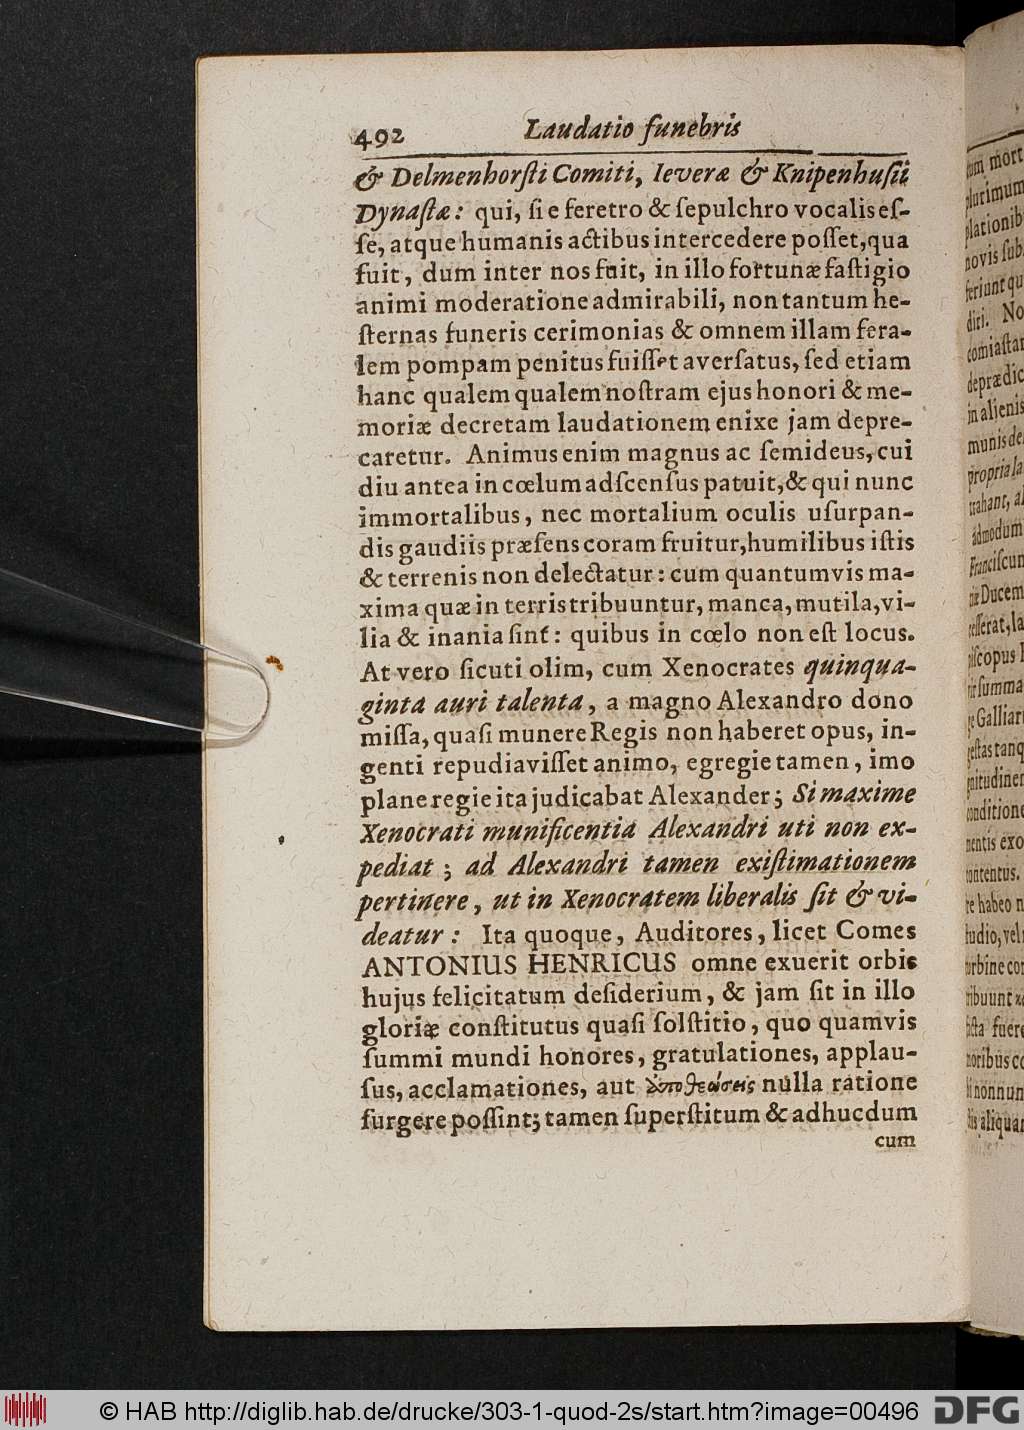 492 Laudatio funebris
& Delmenhorſti Comiti, Ieveræ & Knipenhuſii
Dynaſtæ: qui, ſi e feretro & ſepulchro vocalis eſ-
ſe, atque humanis actibus intercedere poſſet, qua
fuit, dum inter nos fuit, in illo fortunæ faſtigio
animi moderatione admirabili, non tantum he-
ſternas funeris cerimonias & omnem illam fera-
lem pompam penitus fuiſſet averſatus, ſed etiam
hanc qualem qualem noſtram ejus honori & me-
moriæ decretam laudationem enixe jam depre-
caretur. Animus enim magnus ac ſemideus, cui
diu antea in cœlum adſcenſus patuit, & qui nunc
immortalibus, nec mortalium oculis uſurpan-
dis gaudiis præſens coram fruitur, humilibus iſtis
& terrenis non delectatur: cum quantumvis ma-
xima quæ in terris tribuuntur, manca, mutila, vi-
lia & inania ſint: quibus in cœlo non eſt locus.
At vero ſicuti olim, cum Xenocrates quinqua-
ginta auri talenta, a magno Alexandro dono
miſſa, quaſi munere Regis non haberet opus, in-
genti repudiaviſſet animo, egregie tamen, imo
plane regie ita judicabat Alexander; Si maxime
Xenocrati munificentia Alexandri uti non ex-
pediat; ad Alexandri tamen exiſtimationem
pertinere, ut in Xenocratem liberalis ſit & vi-
deatur: Ita quoque, Auditores, licet Comes
ANTONIUS HENRICUS omne exuerit orbis
hujus felicitatum deſiderium, & jam ſit in illo
gloriæ conſtitutus quaſi ſolſtitio, quo quamvis
ſummi mundi honores, gratulationes, applau-
ſus, acclamationes, aut ἀποθεώσεις nulla ratione
ſurgere poſſint; tamen ſuperſtitum & adhucdum
cum
mort
plurimum
plationib
novis ſub
feriunt qu
dici. No
comiaſtar
deprædic
in alienis
munis de
propria la
trahant, al
admodum
Franciſcum
Ducem
piſcopus
ſumma
Galliar
geſtas tanq
conditione
mentis exo
contentus.
re habeo n
ſtudio, vel
turbine cor
tribuunt
ficta fuere
moribus co
nonnun
aliquar
© HAB http://diglib.hab.de/drucke/303-1-quod-2s/start.htm?image=00496 DFG